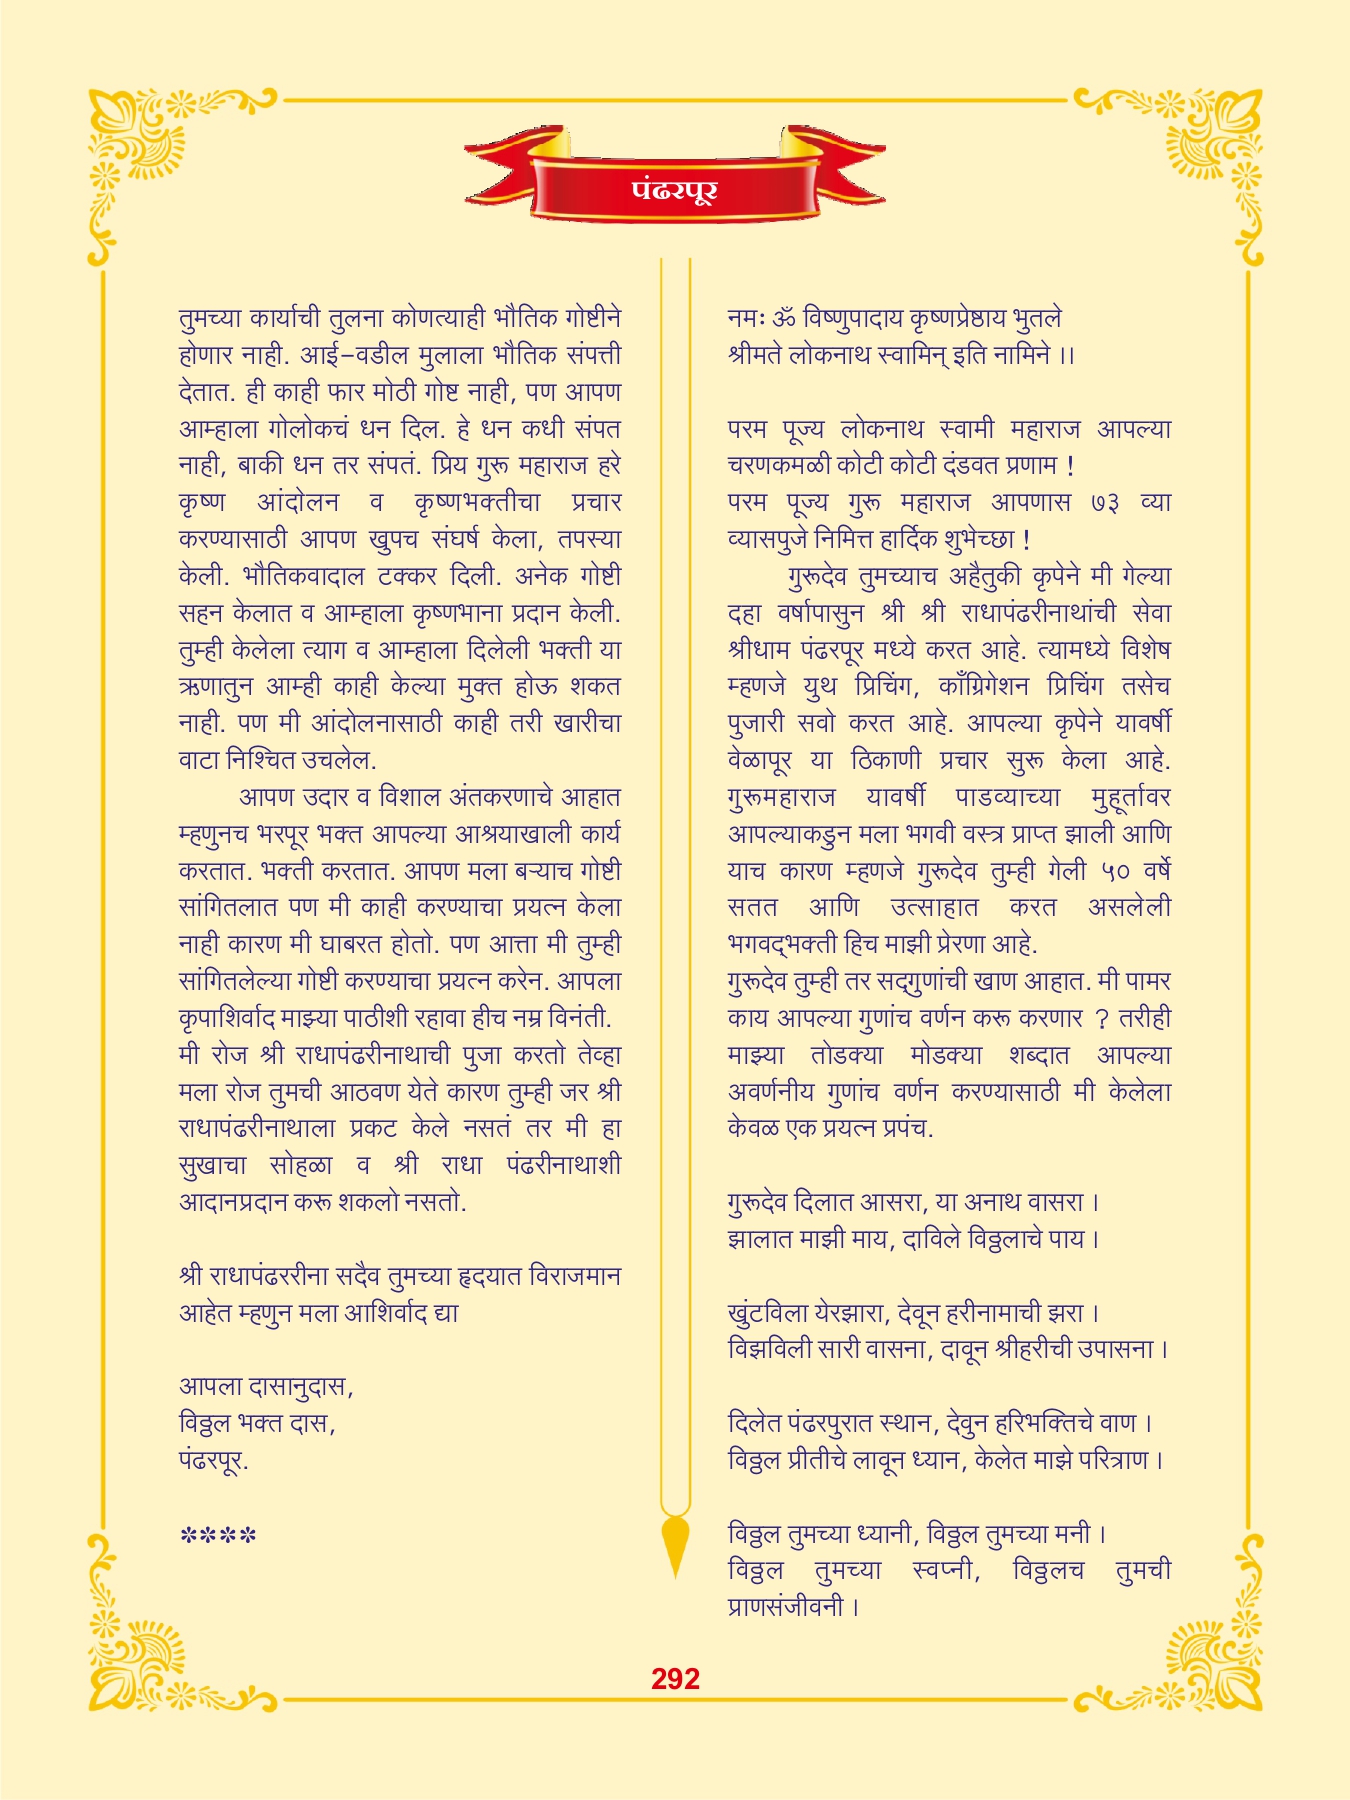 पंढरपूर
तुमच्या कार्याची तुलना कोणत्याही भौतिक गोष्टीने
होणार नाही. आई-वडील मुलाला भौतिक संपत्ती
देतात. ही काही फार मोठी गोष्ट नाही, पण आपण
आम्हाला गोलोकचं धन दिल. हे धन कधी संपत
नाही, बाकी धन तर संपतं. प्रिय गुरू महाराज हरे
कृष्ण आंदोलन व कृष्णभक्तीचा प्रचार
करण्यासाठी आपण खुपच संघर्ष केला, तपस्या
केली. भौतिकवादाल टक्कर दिली. अनेक गोष्टी
सहन केलात व आम्हाला कृष्णभाना प्रदान केली.
तुम्ही केलेला त्याग व आम्हाला दिलेली भक्ती या
ऋणातुन आम्ही काही केल्या मुक्त होऊ शकत
नाही. पण मी आंदोलनासाठी काही तरी खारीचा
वाटा निश्चित उचलेल.
आपण उदार व विशाल अंतकरणाचे आहात
म्हणुनच भरपूर भक्त आपल्या आश्रयाखाली कार्य
करतात. भक्ती करतात. आपण मला बऱ्याच गोष्टी
सांगितलात पण मी काही करण्याचा प्रयत्न केला
नाही कारण मी घाबरत होतो. पण आत्ता मी तुम्ही
सांगितलेल्या गोष्टी करण्याचा प्रयत्न करेन. आपला
कृपाशिर्वाद माझ्या पाठीशी रहावा हीच नम्र विनंती.
मी रोज श्री राधापंढरीनाथाची पुजा करतो तेव्हा
मला रोज तुमची आठवण येते कारण तुम्ही जर श्री
राधापंढरीनाथाला प्रकट केले नसतं तर मी हा
सुखाचा सोहळा व श्री राधा पंढरीनाथाशी
आदानप्रदान करू शकलो नसतो.
श्री राधापंढररीना सदैव तुमच्या हृदयात विराजमान
आहेत म्हणुन मला आशिर्वाद द्या
आपला दासानुदास,
विठ्ठल भक्त दास,
पंढरपूर.
****
नमः ॐ विष्णुपादाय कृष्णप्रेष्ठाय भुतले
श्रीमते लोकनाथ स्वामिन् इति नामिने ।।
परम पूज्य लोकनाथ स्वामी महाराज आपल्या
चरणकमळी कोटी कोटी दंडवत प्रणाम !
परम पूज्य गुरू महाराज आपणास ७३ व्या
व्यासपुजे निमित्त हार्दिक शुभेच्छा !
गुरूदेव तुमच्याच अहैतुकी कृपेने मी गेल्या
दहा वर्षापासुन श्री श्री राधापंढरीनाथांची सेवा
श्रीधाम पंढरपूर मध्ये करत आहे. त्यामध्ये विशेष
म्हणजे युथ प्रिचिंग, काँग्रिगेशन प्रिचिंग तसेच
पुजारी सवो करत आहे. आपल्या कृपेने यावर्षी
वेळापूर या ठिकाणी प्रचार सुरू केला आहे.
गुरूमहाराज यावर्षी पाडव्याच्या मुहूर्तावर
आपल्याकडुन मला भगवी वस्त्र प्राप्त झाली आणि
याच कारण म्हणजे गुरूदेव तुम्ही गेली ५० वर्षे
सतत आणि उत्साहात करत असलेली
भगवद्भक्ती हिच माझी प्रेरणा आहे.
गुरूदेव तुम्ही तर सद्गुणांची खाण आहात. मी पामर
काय आपल्या गुणांच वर्णन करू करणार ? तरीही
माझ्या तोडक्या मोडक्या शब्दात आपल्या
अवर्णनीय गुणांच वर्णन करण्यासाठी मी केलेला
केवळ एक प्रयत्न प्रपंच.
गुरूदेव दिलात आसरा, या अनाथ वासरा ।
झालात माझी माय, दाविले विठ्ठलाचे पाय ।
खुंटविला येरझारा, देवून हरीनामाची झरा ।
विझविली सारी वासना, दावून श्रीहरीची उपासना ।
दिलेत पंढरपुरात स्थान, देवुन हरिभक्तिचे वाण ।
विठ्ठल प्रीतीचे लावून ध्यान, केलेत माझे परित्राण ।
विठ्ठल तुमच्या ध्यानी, विठ्ठल तुमच्या मनी ।
विठ्ठल तुमच्या स्वप्नी, विठ्ठलच तुमची
प्राणसंजीवनी ।
292